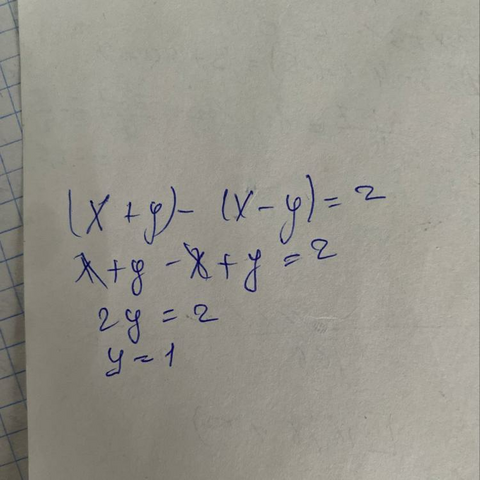 (x+y)-(x-y)=2
x+y-x+y=2
2y=2
y=1